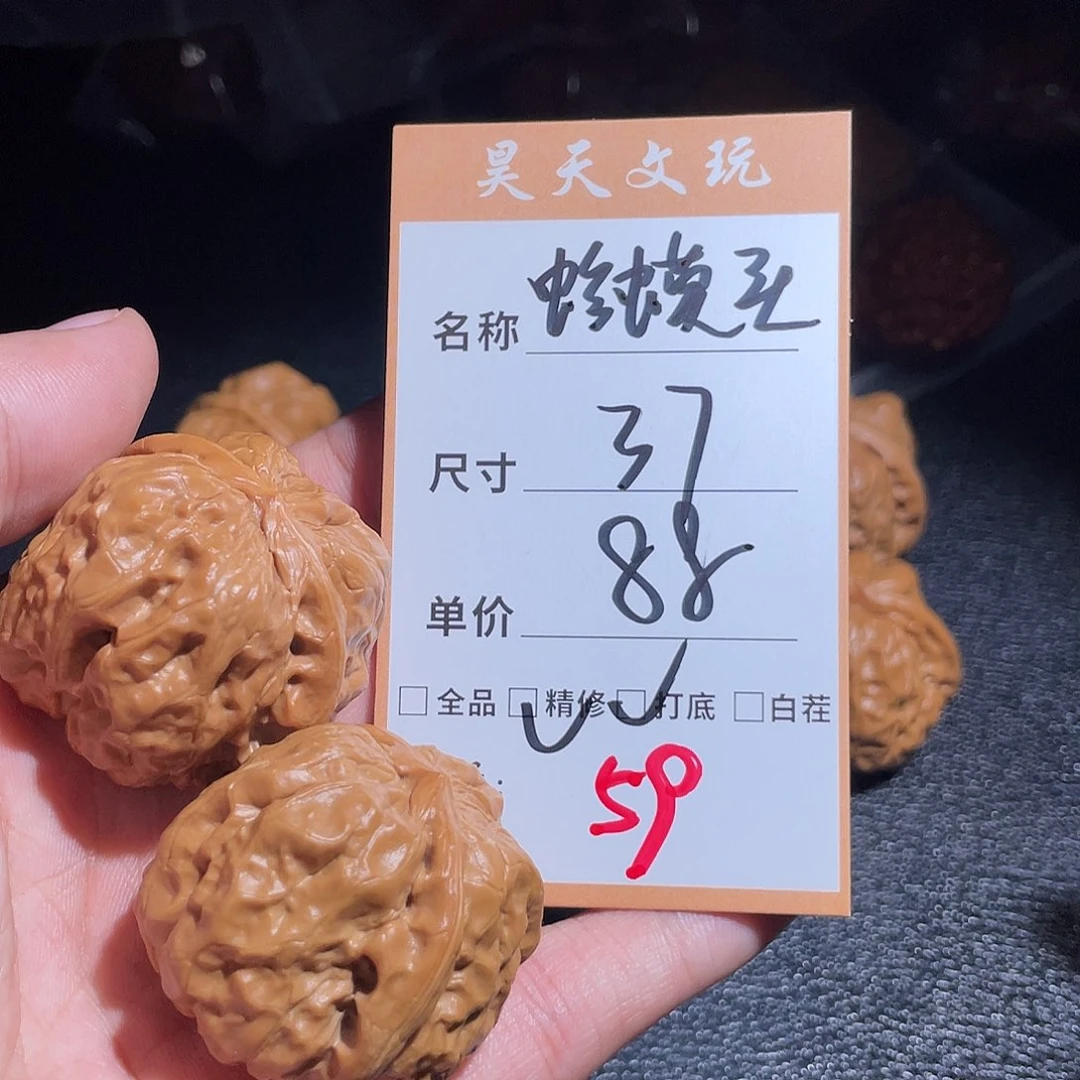 昊天文玩
名称 蛤蟆头
尺寸 37
单价 88
全品 精修 打底 白茬
59